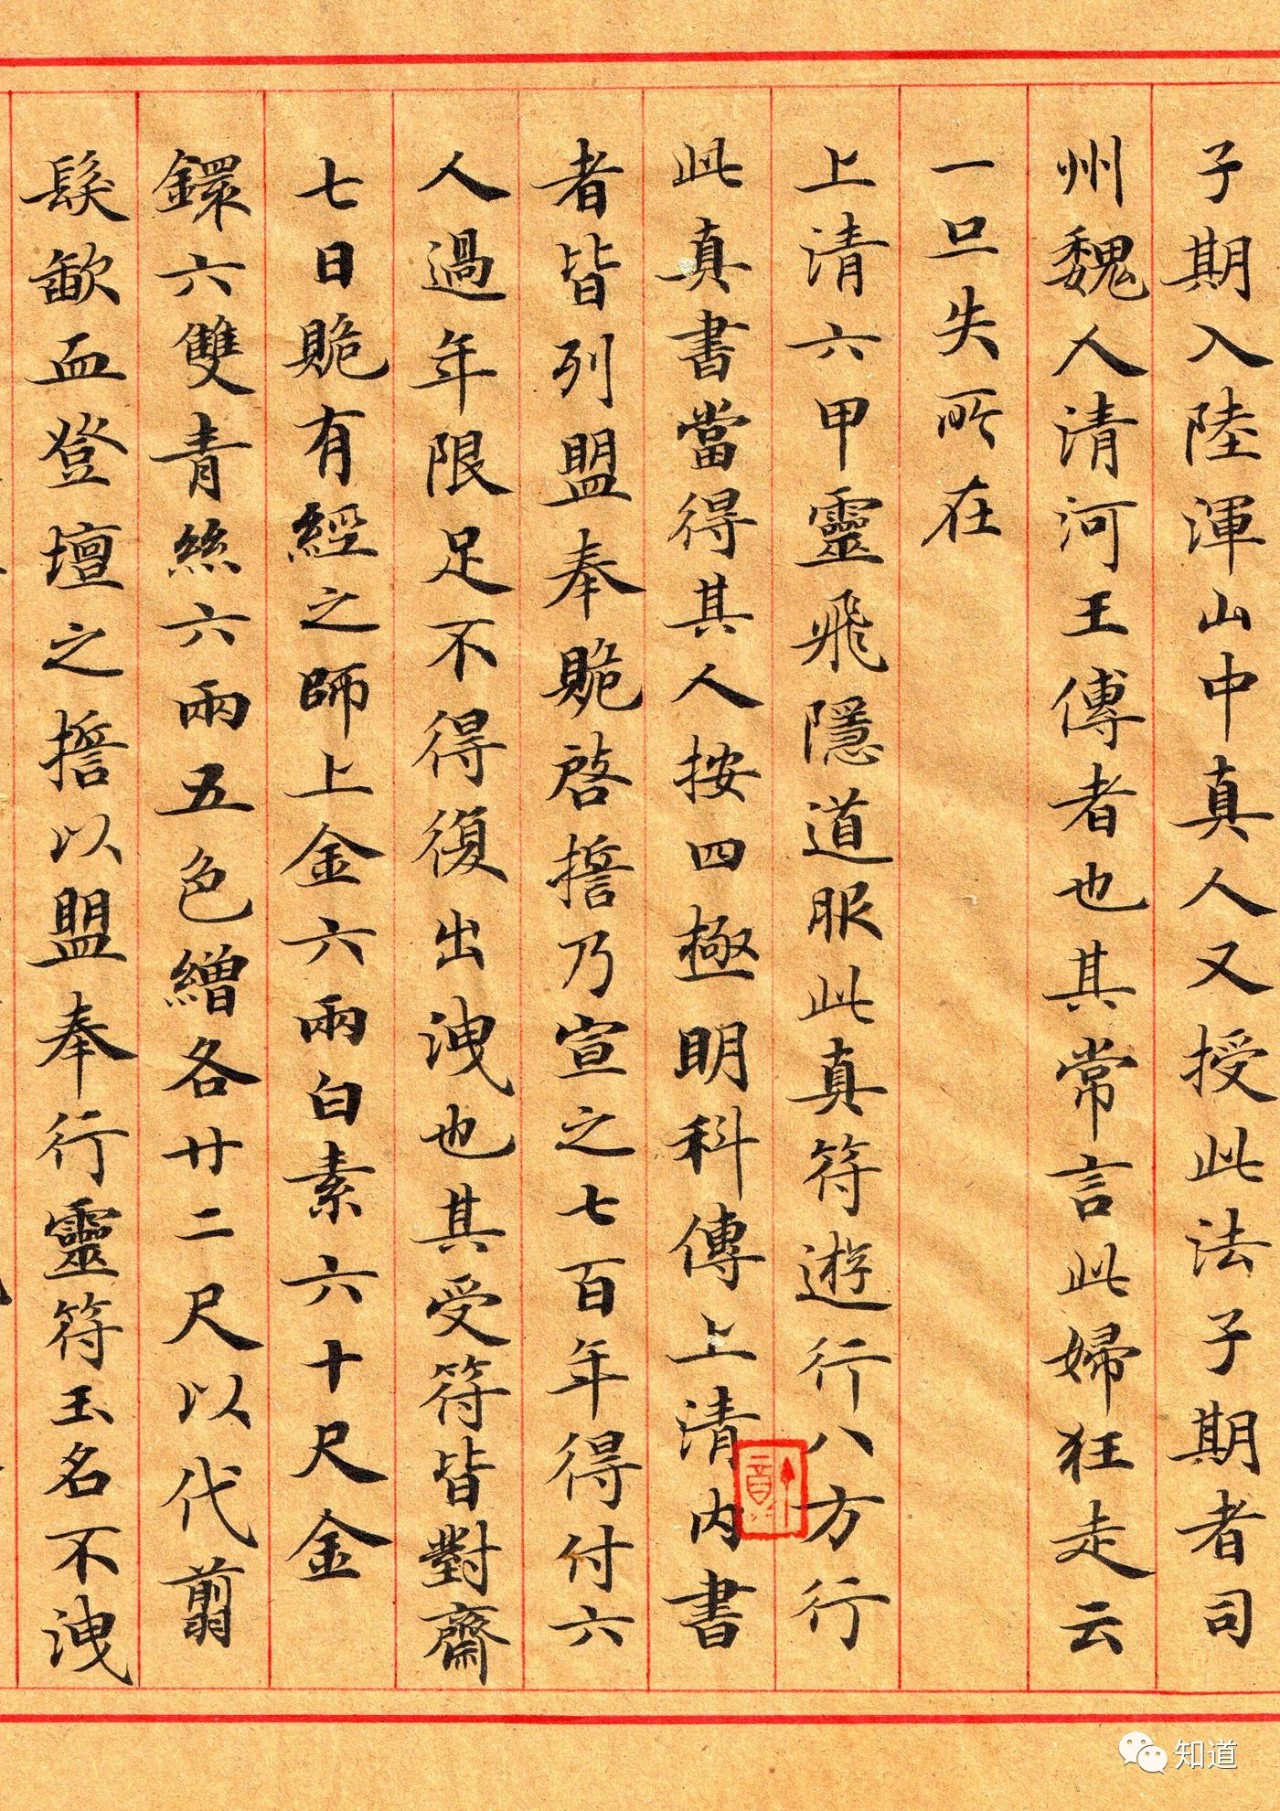 子期入陸渾山中真人又授此法子期者司
州魏人清河王傅者也其常言此婦狂走云
一旦失所在
上清六甲靈飛隱道服此真符遊行八方行
此真書當得其人按四極明科傳上清内書
者皆列盟奉贎啓擔乃宣之七百年得付六
人過年限足不得復出洩也其受符皆對齋
七日贎有經之師上金六兩白素六十尺金
鐶六雙青絲六兩五色繒各廿二尺以代翦
髮歃血登壇之擔以盟奉行靈符玉名不洩
知道